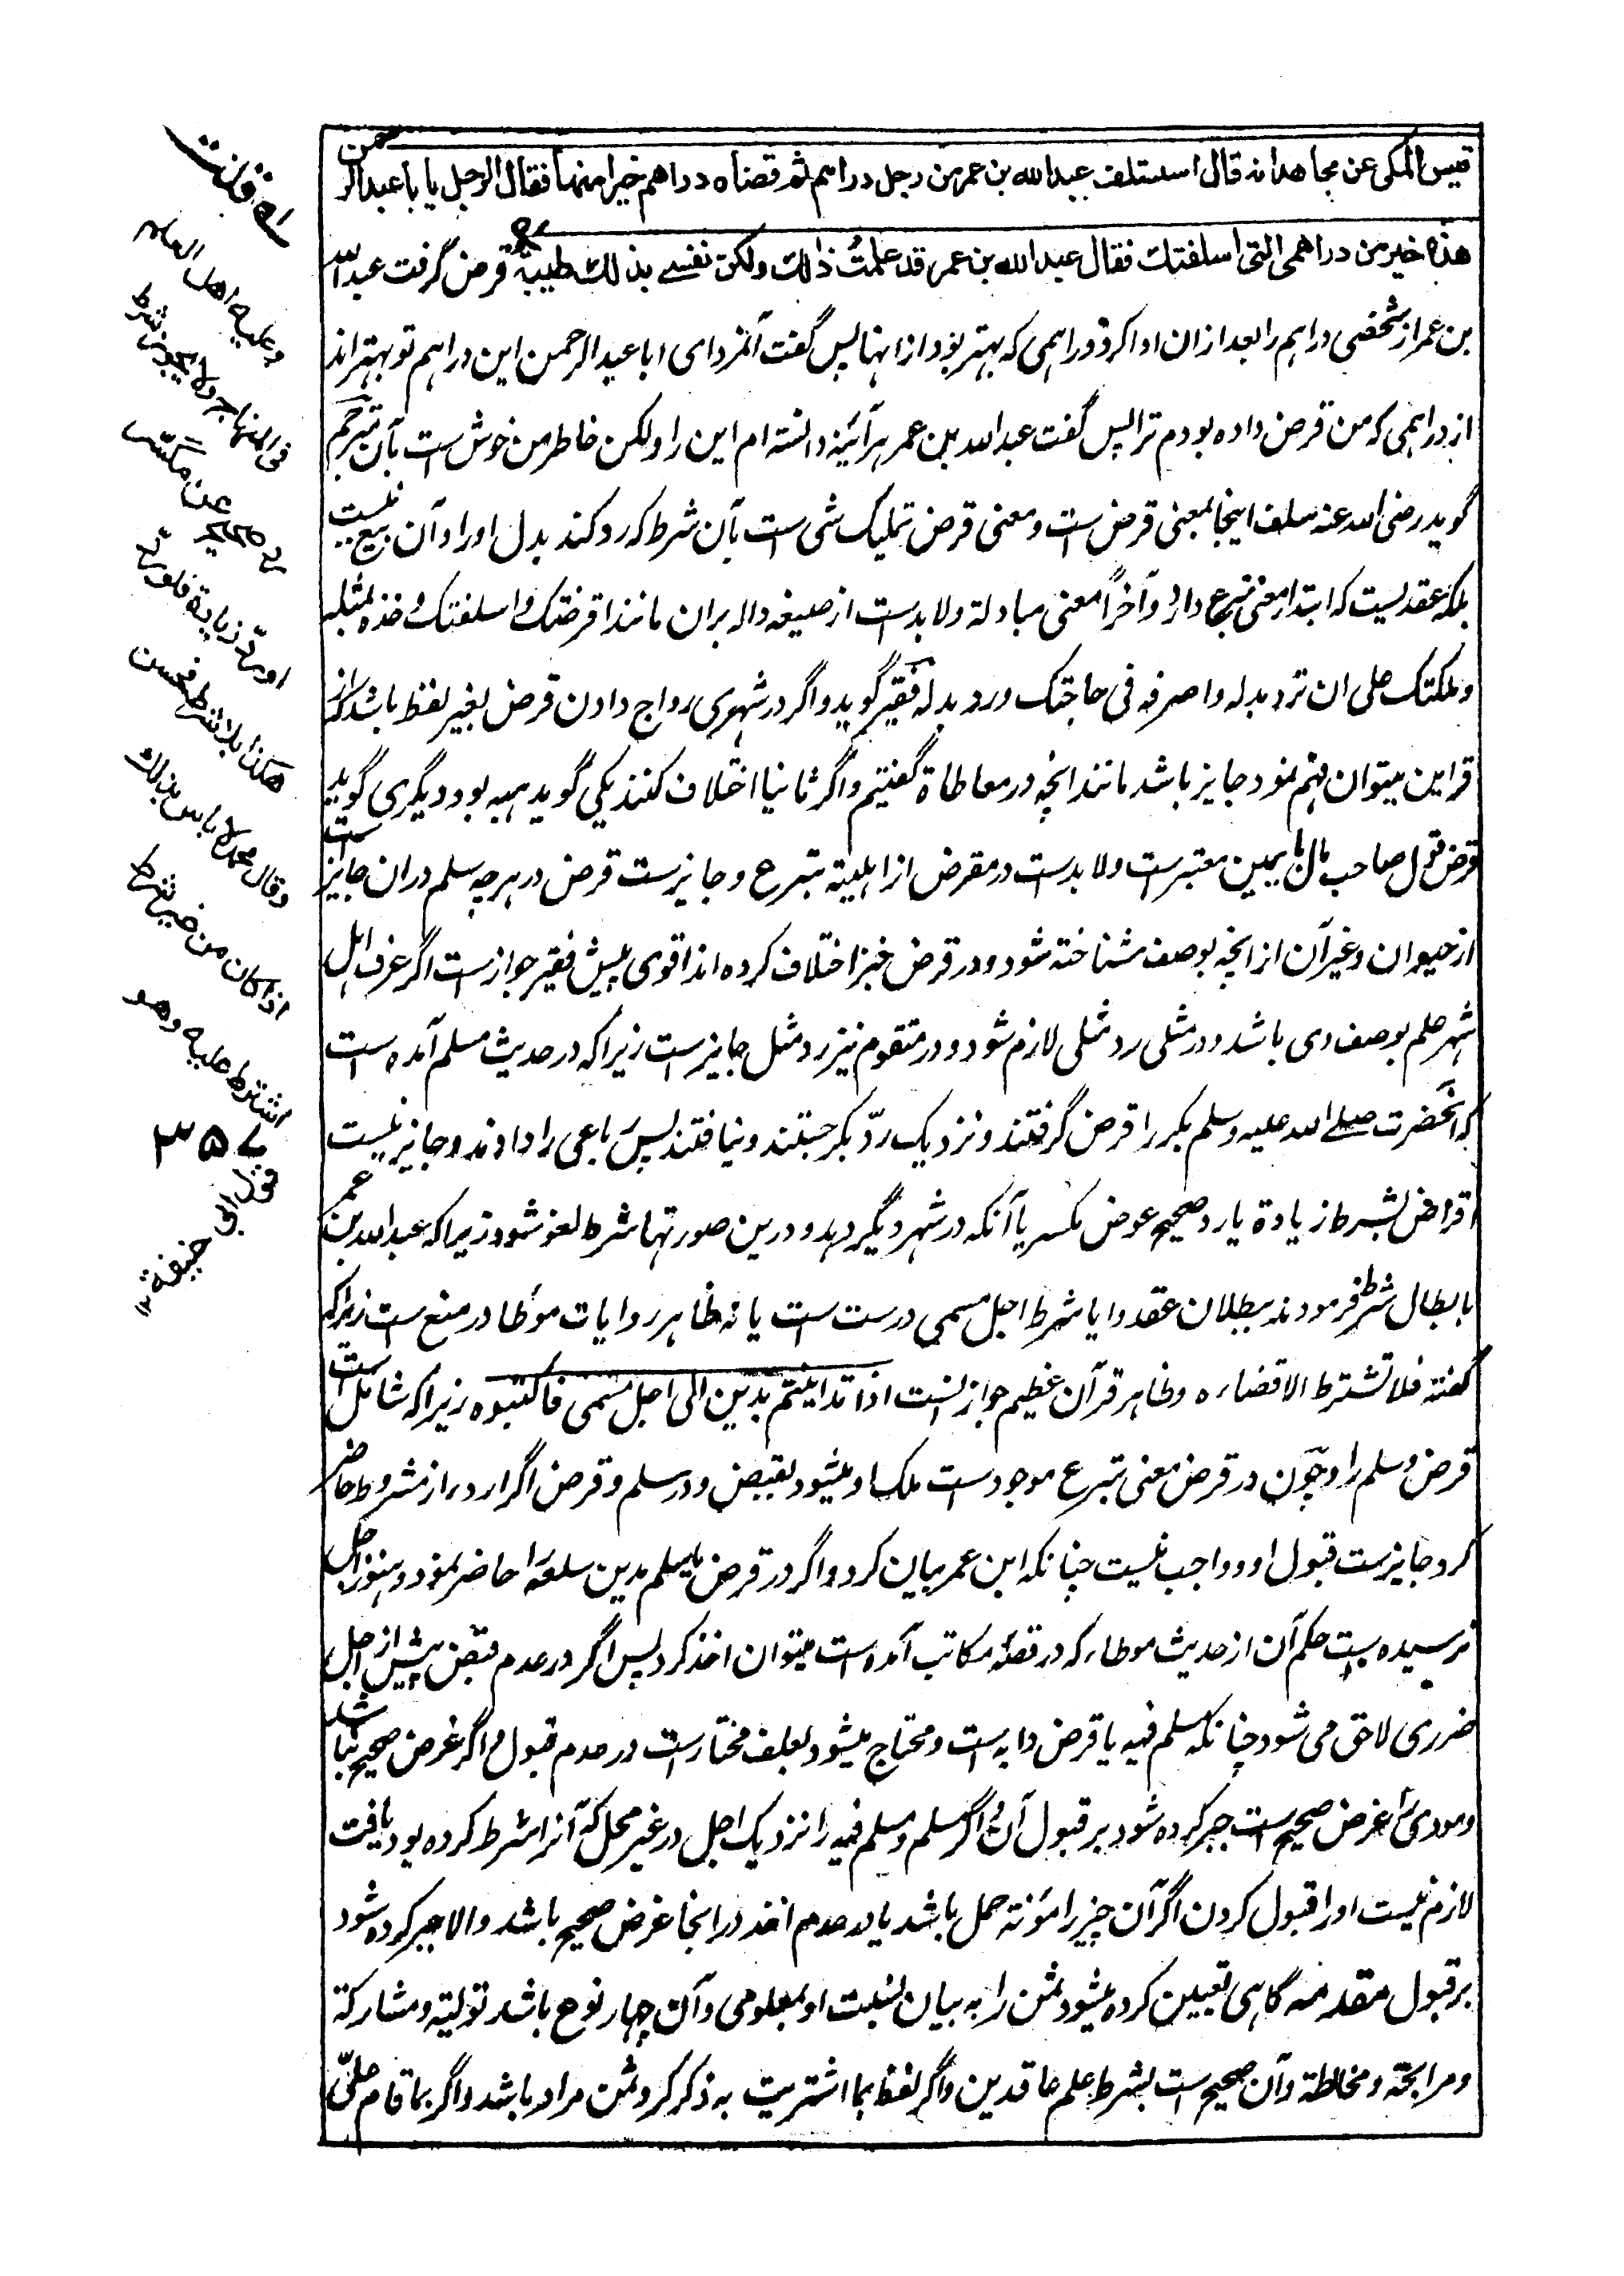 قیس المکی عن مجاهد انه قال استسلف عبد الله بن عمر من رجل دراهم ثم قضاه دراهم خیرا منها فقال الرجل یا با عبد الرحمن
هذه خیر من دراهمی التی اسلفتك فقال عبد الله بن عمر قد علمتُ ذلك ولکن نفسی بذلك طیبة قرض گرفت عبد الله
بن عمر از شخصی دراهم را بعد ازان ادا کرد دراهمی که بهتر بود از انها پس گفت آنمرد ای ابا عبد الرحمن این دراهم تو بهتر اند
از دراهمی که من قرض داده بودم ترا پس گفت عبد الله بن عمر هر آئینه دانسته ام این را ولکن خاطر من خوش ست بآن مترجم
گوید رضی الله عنه سلف اینجا بمعنی قرض ست و معنی قرض تملیک شی ست بآن شرط که رد کند بدل او را و آن بیع نیست
بلکه عقدیست که ابتدا معنی تبرع دارد و آخراً معنی مبادلة و لا بدست از صیغه داله بران مانند اقرضتک و اسلفتک و خذه بمثله
و ملکتک علی ان ترد بدله و اصرفه فی حاجتک و رد بدله فقیر گوید و اگر در شهری رواج دادن قرض بغیر لفظ باشد که از
قراین میتوان فهم نمود جایز باشد مانند انچه در معاطاة گفتیم و اگر ثانیا اختلاف کنند یکی گوید هبه بود و دیگری گوید
قرض قول صاحب مال با یمین معتبرست و لا بدست در مقرض از اهلیته تبرع و جایزست قرض در هرچه سلم دران جایز ست
از حیوان و غیر آن از انچه بوصف شناخته شود و در قرض خبز اختلاف کرده اند اقوی پیش فقیر جواز ست اگر عرف اهل
شهر علم بوصف وی باشد و در مثلی رد مثلی لازم شود و در متقوم نیز رد مثل جایز ست زیرا که در حدیث مسلم آمده است
که آنحضرت صلی الله علیه وسلم بکر را قرض گرفتند و نزدیک ردّ بکر جستند و نیافتند پس رباعی را دادند و جایز نیست
اقراض بشرط زیادة یا رد صحیح عوض مکسر یا آنکه در شهر دیگر دهد و درین صورتها شرط لغو شود زیرا که عبد الله بن عمر
بابطال شرط فرمود نه ببطلان عقد و ایا شرط اجل مسمی درست ست یا نه ظاهر روایات موطا در منع ست زیرا که
گفته فلا تشترط الا قضاءه و ظاهر قرآن عظیم جواز انست اذا تداینتم بدین الی اجل مسمی فاکتبوه زیرا که شامل ست
قرض و سلم را و چون در قرض معنی تبرع موجود ست ملک او میشود بقبض و در سلم و قرض اگر ارد از مشروط حاضر
کرد جایزست قبول او و واجب نیست چنانکه ابن عمر بیان کرد و اگر در قرض یا سلم مدین سلعه را حاضر نمود و هنوز اجل
نرسیده ست حکم آن از حدیث موطاء که در قصهٔ مکاتب آمده ست میتوان اخذ کرد پس اگر در عدم قبض پیش از اجل
ضرری لاحق می شود چنانکه مسلم فیه یا قرض دابه ست و محتاج میشود بعلف مختارست در عدم قبول و اگر غرض صحیح نباشد
و مودی را غرض صحیح ست جبر کرده شود بر قبول آن و اگر مسلم و مسلم فیه را نزدیک اجل در غیر محل که آنرا شرط کرده بود یافت
لازم نیست او را قبول کردن اگر آن چیز را مؤنته حمل باشد یا در عدم اخذ در انجا غرض صحیح باشد و الا جبر کرده شود
بر قبول مقدمه گاهی تعیین کرده میشود ثمن را به بیان نسبت او بمعلومی و آن چهار نوع باشد تولیة و مشارکة
و مرابحة و مخاطة و آن صحیح ست بشرط علم عاقدین و اگر لفظ بما اشتریت به ذکر کرد ثمن مراد باشد و اگر بما قام علیّ
وعلیه اهل العلم
فی المنهاج ولا یجوز بشرط
ردّ صحیح عن مکسّر
او ردّ زیادة فلو ردّ
هکذا بلا شرط فحسن
وقال محمد لا باس بذلك
اذا کان من غیر شرط
اشترط علیه وهو
۳۵۷
قول ابی حنیفة ۱۲